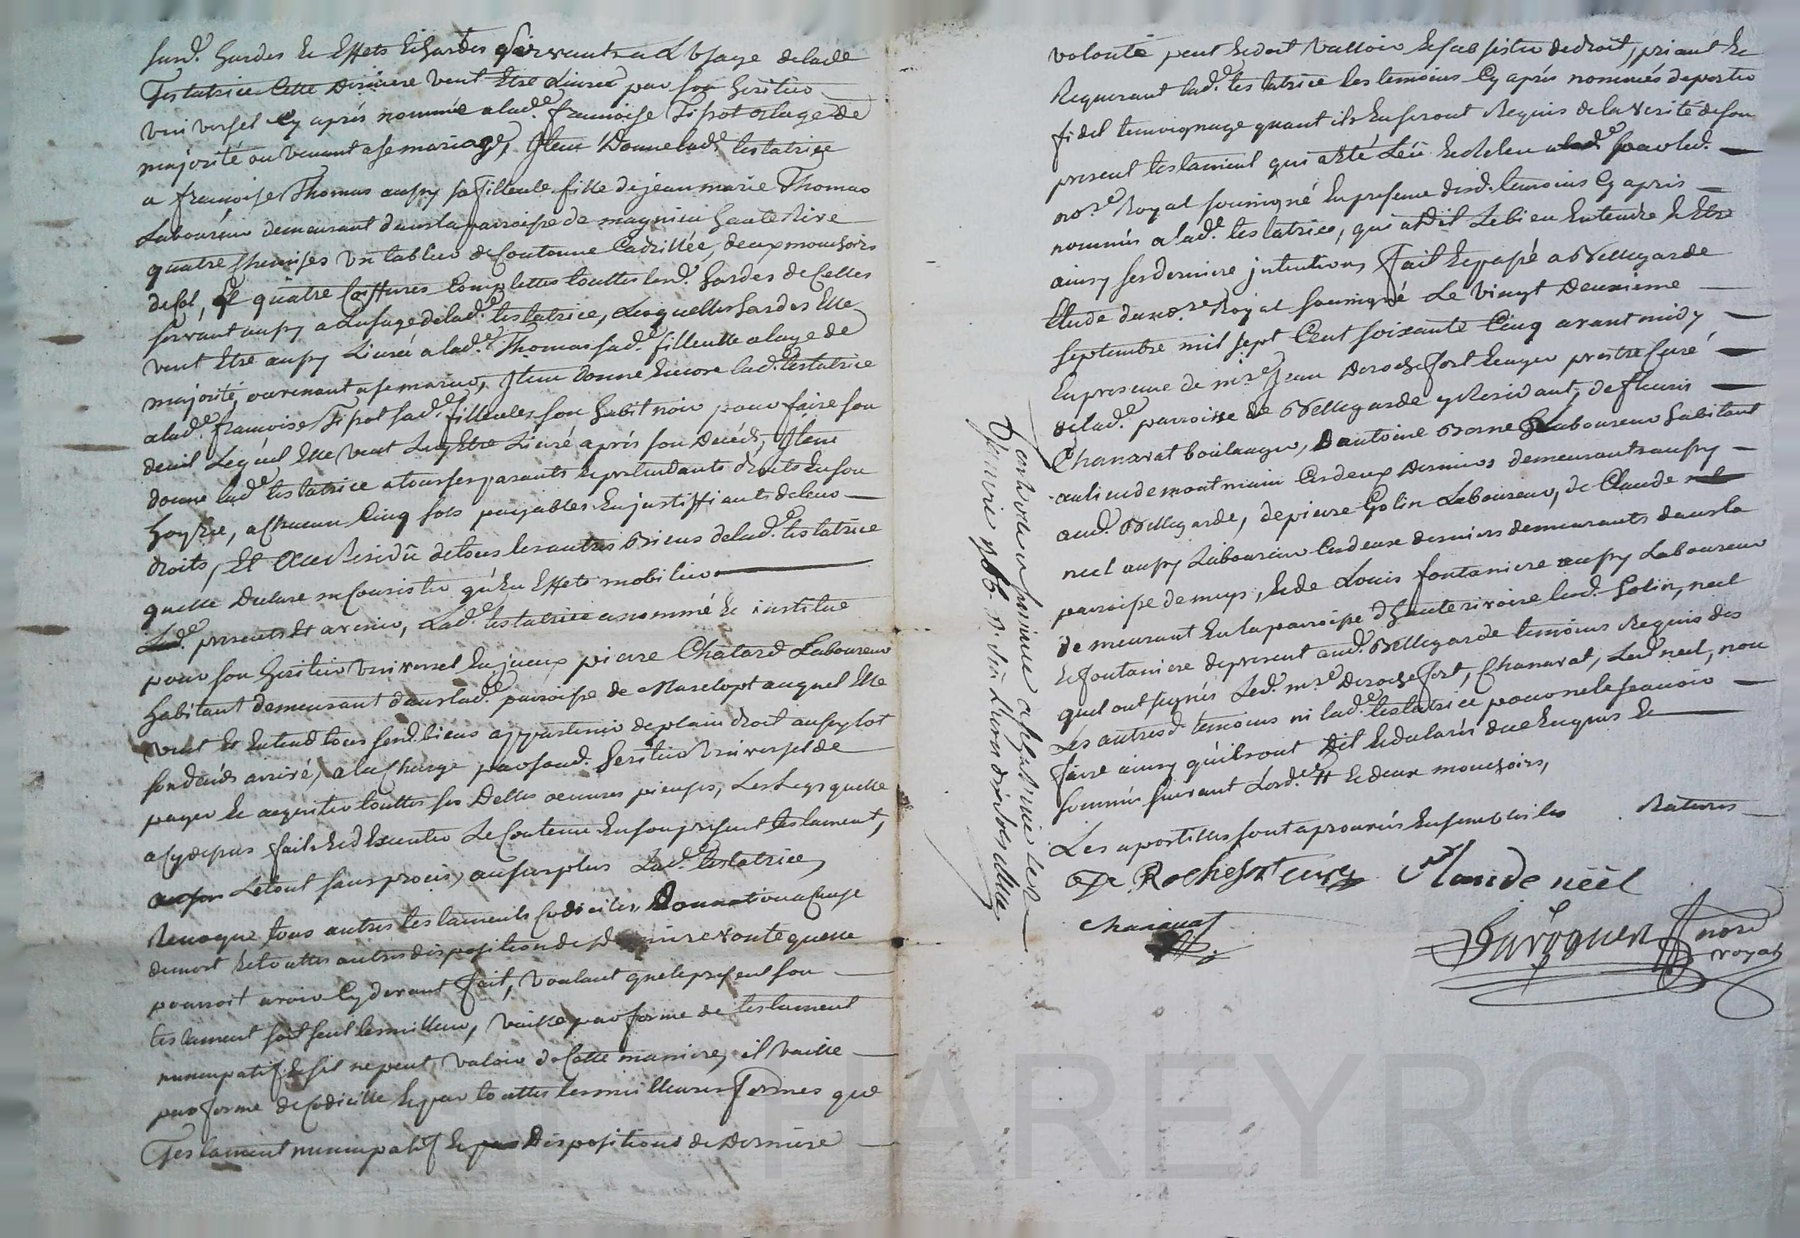 susd. hardes et Effets et hardes servants a L'Usage de lade
Testatrice Cette Derniere veut Etre Livrée par son heritier
universel Cy après nommé a lad.e francoise Tipot a lage de
majorité ou venant a se marier, Item Donne lad.e testatrice
a francoise Thomas aussy sa filleule fille de jean marie Thomas
Laboureur demeurant dans la paroisse de hauteRive
quatre chemises un tablier de Coutonne Cadrillée, deux mouchoirs
de Col, et quatre Coiffures Complettes touttes lesd. hardes de Celles
servant aussy a Lusage de lad.e testatrice, Lesquelles hardes Elle
veut Etre aussy Livrée a lad.e Thomas sad.e filleulle a lage de
majorité, ou venant a se marier, Item donne Encore lad.e testatrice
a lad.e francoise Tipot sad.e filleulle, son habit noir pour faire son
deuil Lequel Elle veut Luy Etre Livré après son Decéds, Item
donne lad.e testatrice a tous ses parants et pretendants droits En son
hoyrie, a Chacun Cinq sols payables En justiffiants de leur
droits, Et Au Residû de tous les autres Biens de lad.e testatrice
quelle Declare ne Consister qu'En Effets mobilier
presents et avenir, Lad.e testatrice a nommé et institué
pour son heritier universel pierre Chatard Laboureur
habitant demeurant dans lad.e paroisse de Marclopt auquel Elle
veut et Entend tous sesd. biens appartenir de plain droit aussy tot
son decéds arrivé, a la Charge par sond. heritier universel de
payer et acquitter touttes ses Dettes oeuvres pieuses, Les Legs quelle
a Cy depus fait et d'Executer Le Contenu En son present testament,
Le tout sans procès, au surplus Lad.e testatrice
Revoque tous autres testaments Codiciles, Donnation a Cause
de mort et touttes autres dispositions de Derniere volonte quelle
pourroit avoir Cy devant fait, voulant que le present son
testament soit seul le meilleur, vaille par forme de testament
nuncupatif et s'il ne peut valoir de Cette maniere, il vaille
par forme de Codicille et par touttes les meilleures formes que
Testament nuncupatif et Dispositions de Derniere
volonté peut et doit valloir et subsister de droit, priant et
Requerant lad.e testatrice les temoins Cy après nommés de porter
fidel temoignage quant ils En seront Requis de la verité de son
present testament qui a Eté Leü et Releu a lad.e par led.
no.re Royal soussigné En presence desd. temoins Cy après
nommés a lad.e testatrice, qui a dit Le bien Entendre et Etre
ainsy ses derniere intentions, fait et passé a Bellegarde
Etude du no.re Royal soussigné Le vingt Deuxieme
septembre mil sept Cent soixante Cinq avant midy
En presence de m.re Jean Derochefort Ecuyer prestre Curé
de lad.e parroisse de Bellegarde y Residant, de fleuris
Chanavat boulanger, Laboureur habitant
au lieu de montmain Ces deux Derniers demeurants aussy
aud. Bellegarde, de pierre Golin Laboureur, de Claude
neel aussy Laboureur Ces deux derniers demeurants dans la
paroisse de meys, et de Louis fontaniere aussy Laboureur
demeurant En la paroisse d'hauterivoire lesd. Golin, neel
et fontaniere de present aud. Bellegarde temoins Requis des
quel ont signés Led. m.re Derochefort, Chanavat, Led. neel, non
Les autresd. temoins ni lad.e testatrice pour ne le scavoir
faire ainsy qu'ils ont Dit et declaré de ce Enquis et
sommés suivant Lord.e et deux mouchoirs,
Les apostilles sont aprouvés Ensemble les Ratures
De Rochefort Curé Claude nèèl
chanavat
Duroguen nore
royal
Controllé a
CHAREYRON